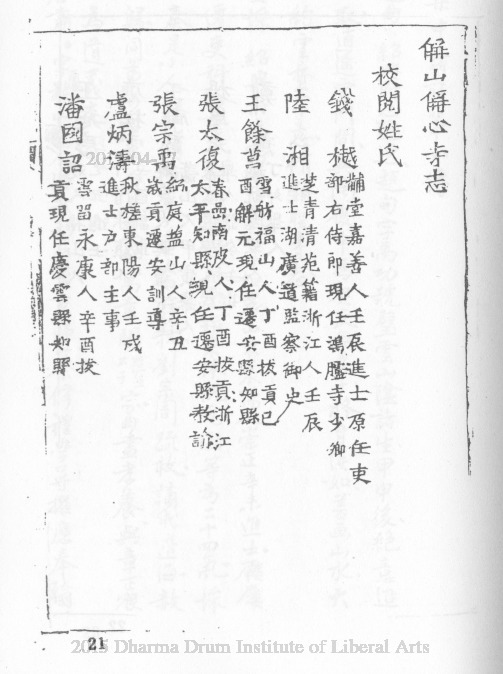 山心寺志
校閱姓氏
錢樾
黼堂嘉善人壬辰進士原任吏
部右侍郎現任鴻臚寺少卿
陸湘
芝青清苑籍浙江人壬辰
進士湖廣道監察御史
王餘
雪舫福山人丁酉拔貢己
酉解元現任遷安縣知縣
張太復
春嵒南皮人丁酉拔貢浙江
太平知縣現任遷安縣教諭
張宗禹
庭益山人辛丑
歲貢遷安訓導
盧炳濤
秋槎東陽人壬戌
進士部主事
潘國詔
雲留永康人辛酉拔
貢現任慶雲縣知縣
21
2015 Dharma Drum Institute of Liberal Arts